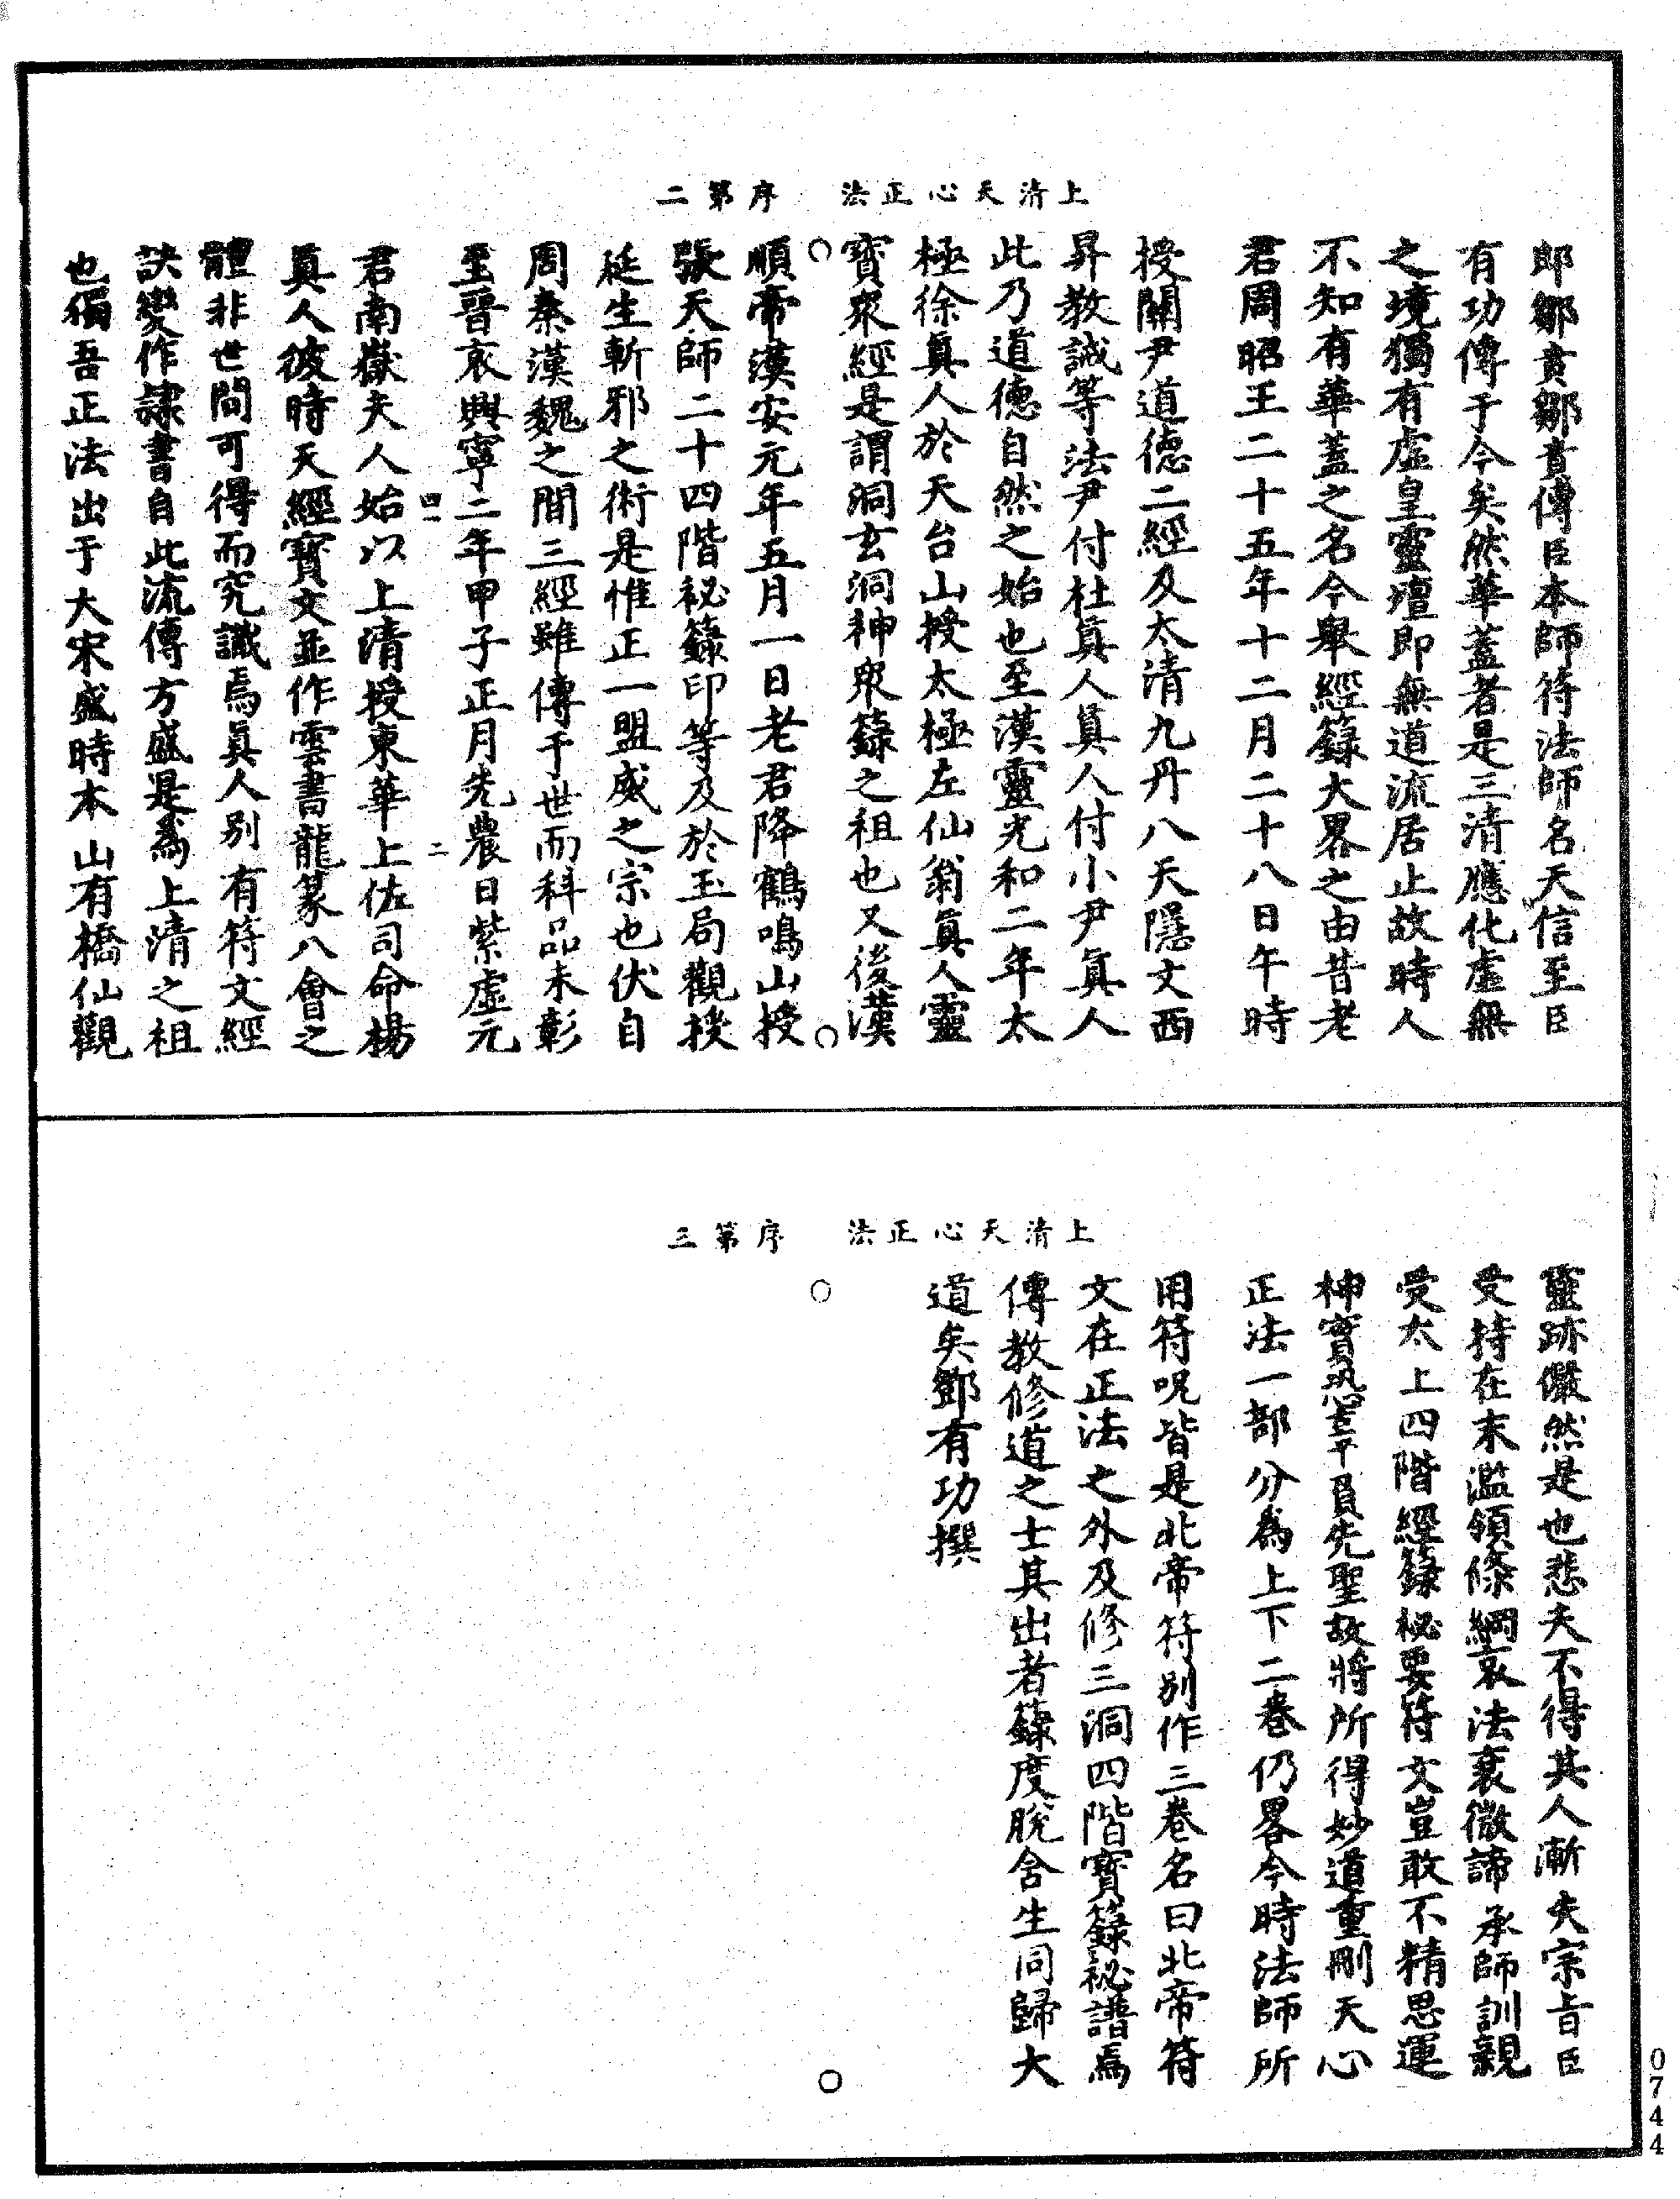 上清天心正法　序第二
郎鄒賁鄒賁傳臣本師符法師名天信至臣
有功傳于今矣然華蓋者是三清應化虛無
之境獨有虛皇靈壇即無道流居止故時人
不知有華蓋之名今舉經籙大畧之由昔老
君周昭王二十五年十二月二十八日午時
授關尹道德二經及太清九丹八天隱文西
昇教誡等法尹付杜真人真人付小尹真人
此乃道德自然之始也至漢靈光和二年太
極徐真人於天台山授太極左仙翁真人靈
寶眾經是謂洞玄洞神眾籙之祖也又後漢
順帝漢安元年五月一日老君降鶴鳴山授
張天師二十四階祕籙印等及於玉局觀授
延生斬邪之術是惟正一盟威之宗也伏自
周秦漢魏之間三經雖傳于世而科品未彰
至晉哀興寧二年甲子正月先農日紫虛元
四一　二
君南嶽夫人始以上清授東華上佐司命楊
真人彼時天經寶文並作雲書龍篆八會之
體非世間可得而究識焉真人別有符文經
訣變作隸書自此流傳方盛是為上清之祖
也獨吾正法出于大宋盛時本山有橋仙觀
上清天心正法　序第三
靈跡儼然是也悲夫不得其人漸失宗旨臣
受持在末濫領條綱哀法衰微諦承師訓親
受太上四階經籙祕要符文豈敢不精思運
神寶恐辜負先聖故將所得妙道重刪天心
正法一部分為上下二卷仍畧今時法師所
用符呪皆是北帝符別作三卷名曰北帝符
文在正法之外及修三洞四階寶籙祕譜焉
傳教修道之士其出者籙度脫含生同歸大
道矣鄧有功撰
0744